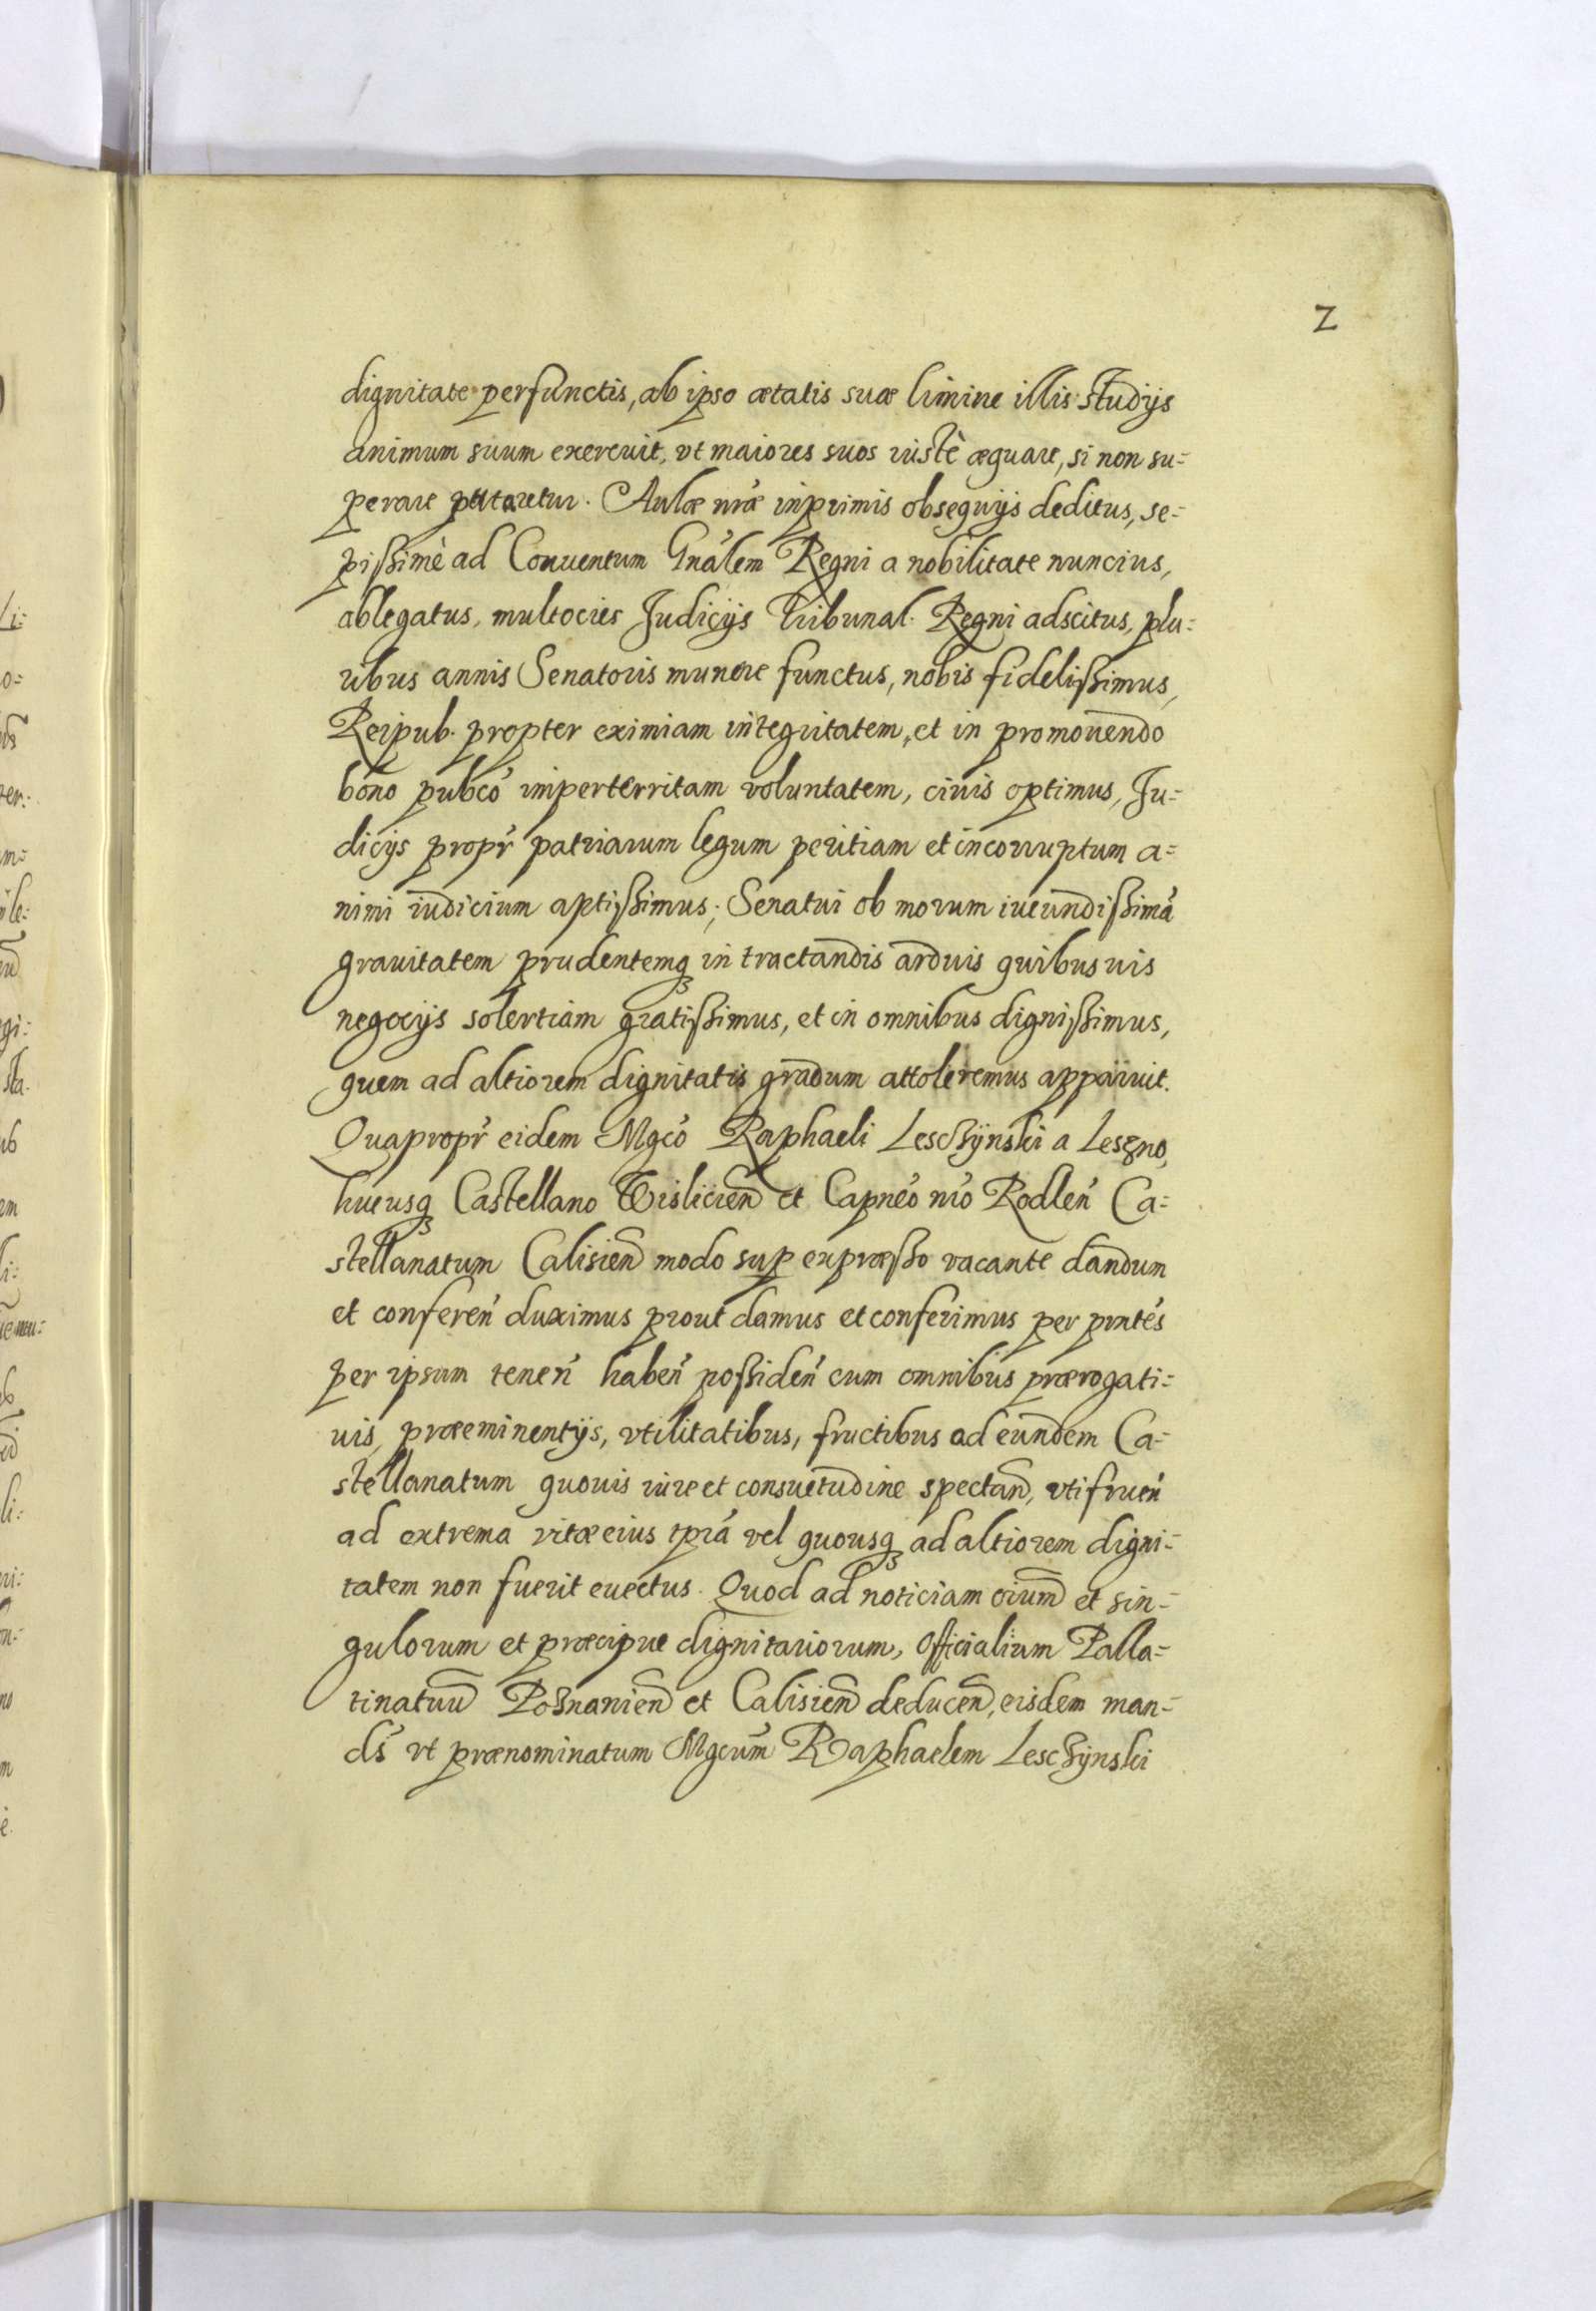 2
dignitate perfunctis, ab ipso ætatis suæ limine illis studijs
animum suum exercuit, vt maiores suos iustè æquare, si non su=
perare putaretur. Aulæ nrǽ inprimis obsequijs deditus, se=
pissimè ad Conuentum Gnálem Regni a nobilitate nuncius,
ablegatus, multocies Judicijs Tribunal. Regni adscitus, plu=
ribus annis Senatoris munere functus, nobis fidelissimus,
Reipub. propter eximiam integritatem, et in promouendo
bono pubcó imperterritam voluntatem, ciuis optimus, Ju=
dicijs propŕ patriarum legum peritiam et incorruptum a=
nimi iudicium aptissimus; Senatui ob morum iucundissimā
grauitatem prudentemq₃ in tractandis arduis quibusuis
negocijs solertiam gratissimus, et in omnibus dignissimus,
quem ad altiorem dignitatis gradum attoleremus apparuit.
Quapropŕ eidem Mgcó Raphaeli Lesczÿnski a Leszno,
hucusq₃ Castellano Wislicień et Capneó nró Rodleń Ca=
stellanatum Calisień modo sup expræsso vacante dandum
et confereń duximus prout damus et conferimus per pnteś
per ipsum teneń habeń possideń cum omnibus prærogati=
uis, præeminentijs, vtilitatibus, fructibus ad eundem Ca=
stellanatum quouis iure et consuetudine spectań, vtifrueń
ad extrema vitæ eius tprá vel quousq₃ ad altiorem digni=
tatem non fuerit euectus. Quod ad noticiam oium̄ et sin=
gulorum et præcipue dignitariorum, Officialium Palla=
tinatuū Posnanień et Calisień deduceń, eisdem man=
dś vt prænominatum Mgcum̄ Raphaelem Lesczÿnski